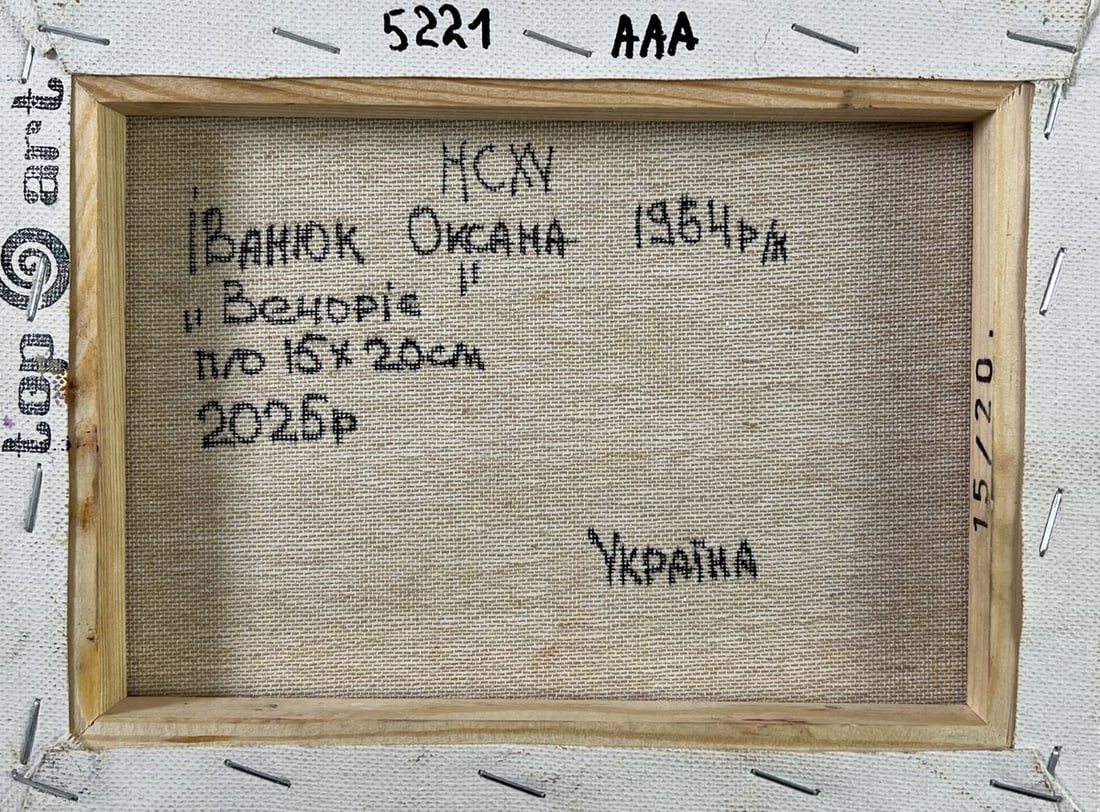 5221 AAA
top art
НСХУ
Іванюк Оксана 1964р/н
„Вечоріє"
п/о 15х20см
2025р
15/20.
Україна